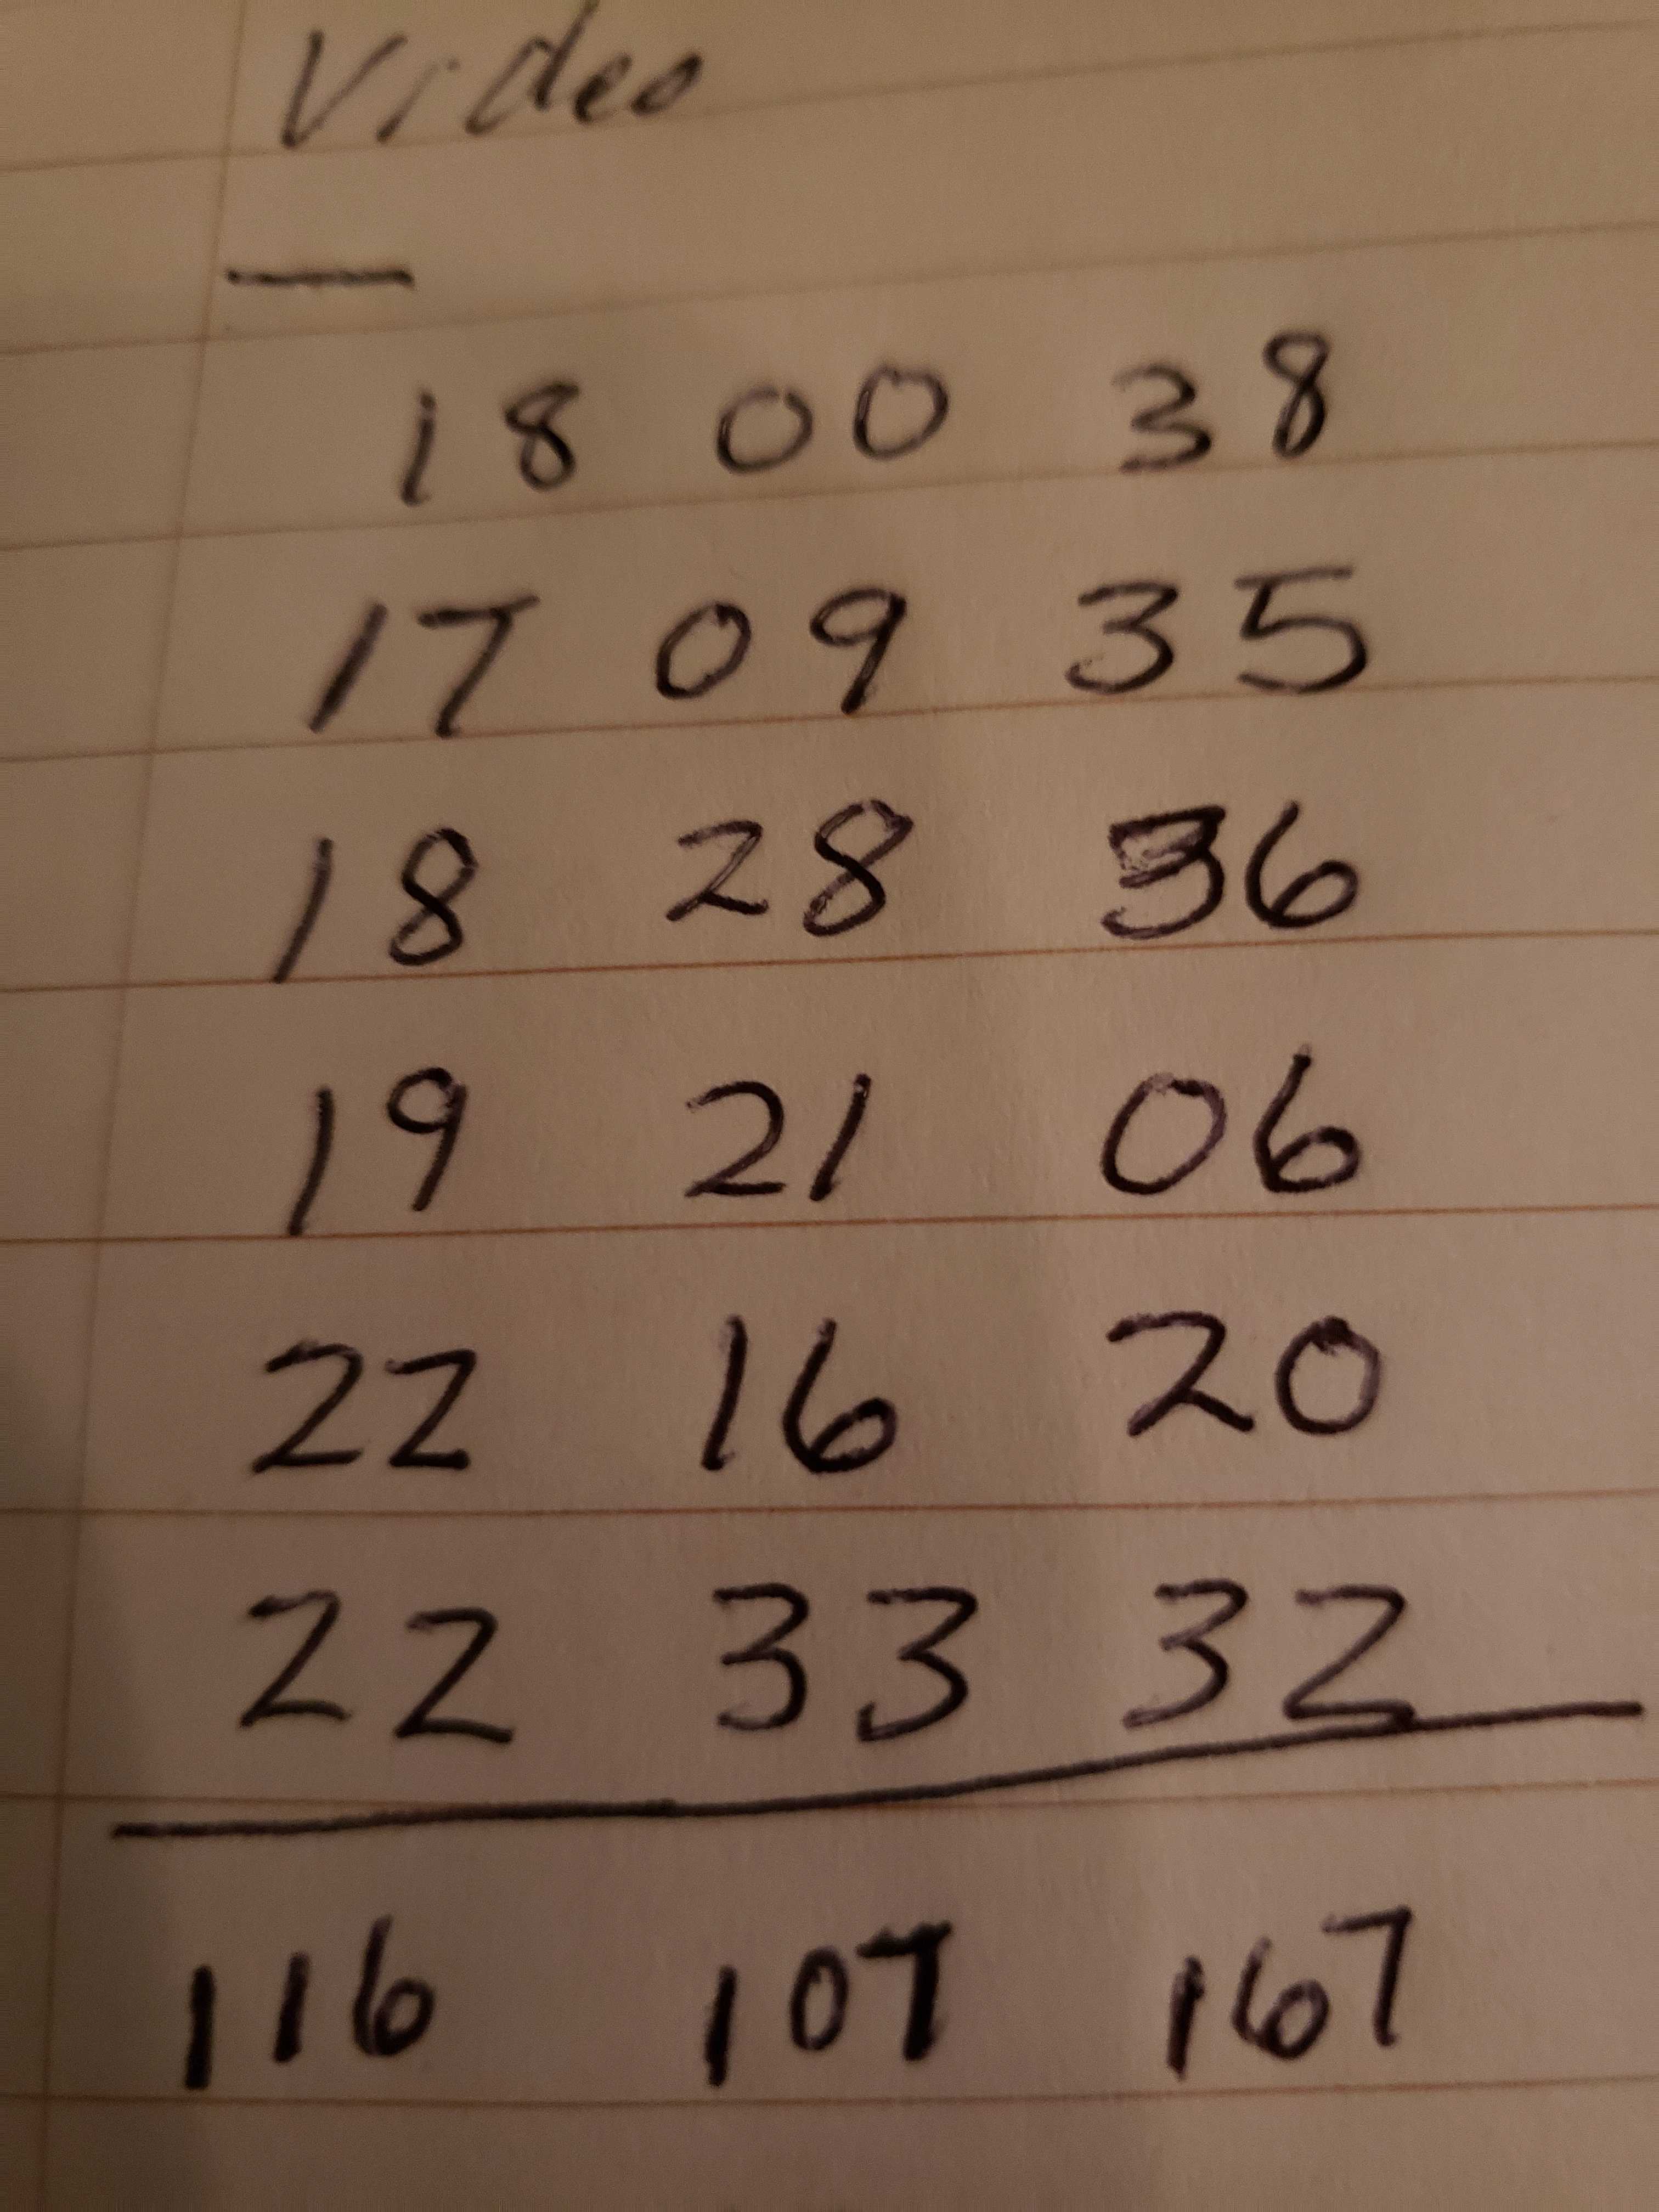 Video
—
18 00 38
17 09 35
18 28 36
19 21 06
22 16 20
22 33 32
116 107 167